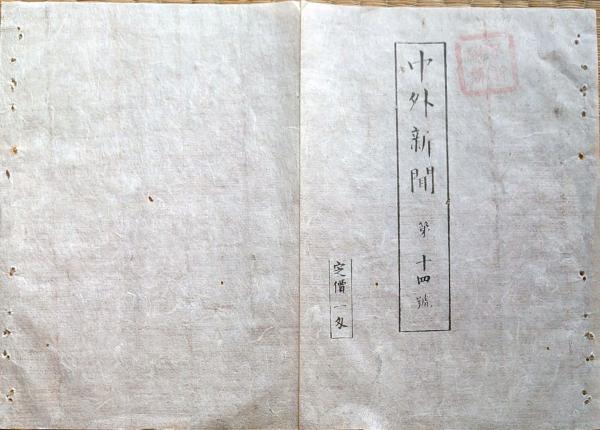 中外新聞 第十四號
定價一匁